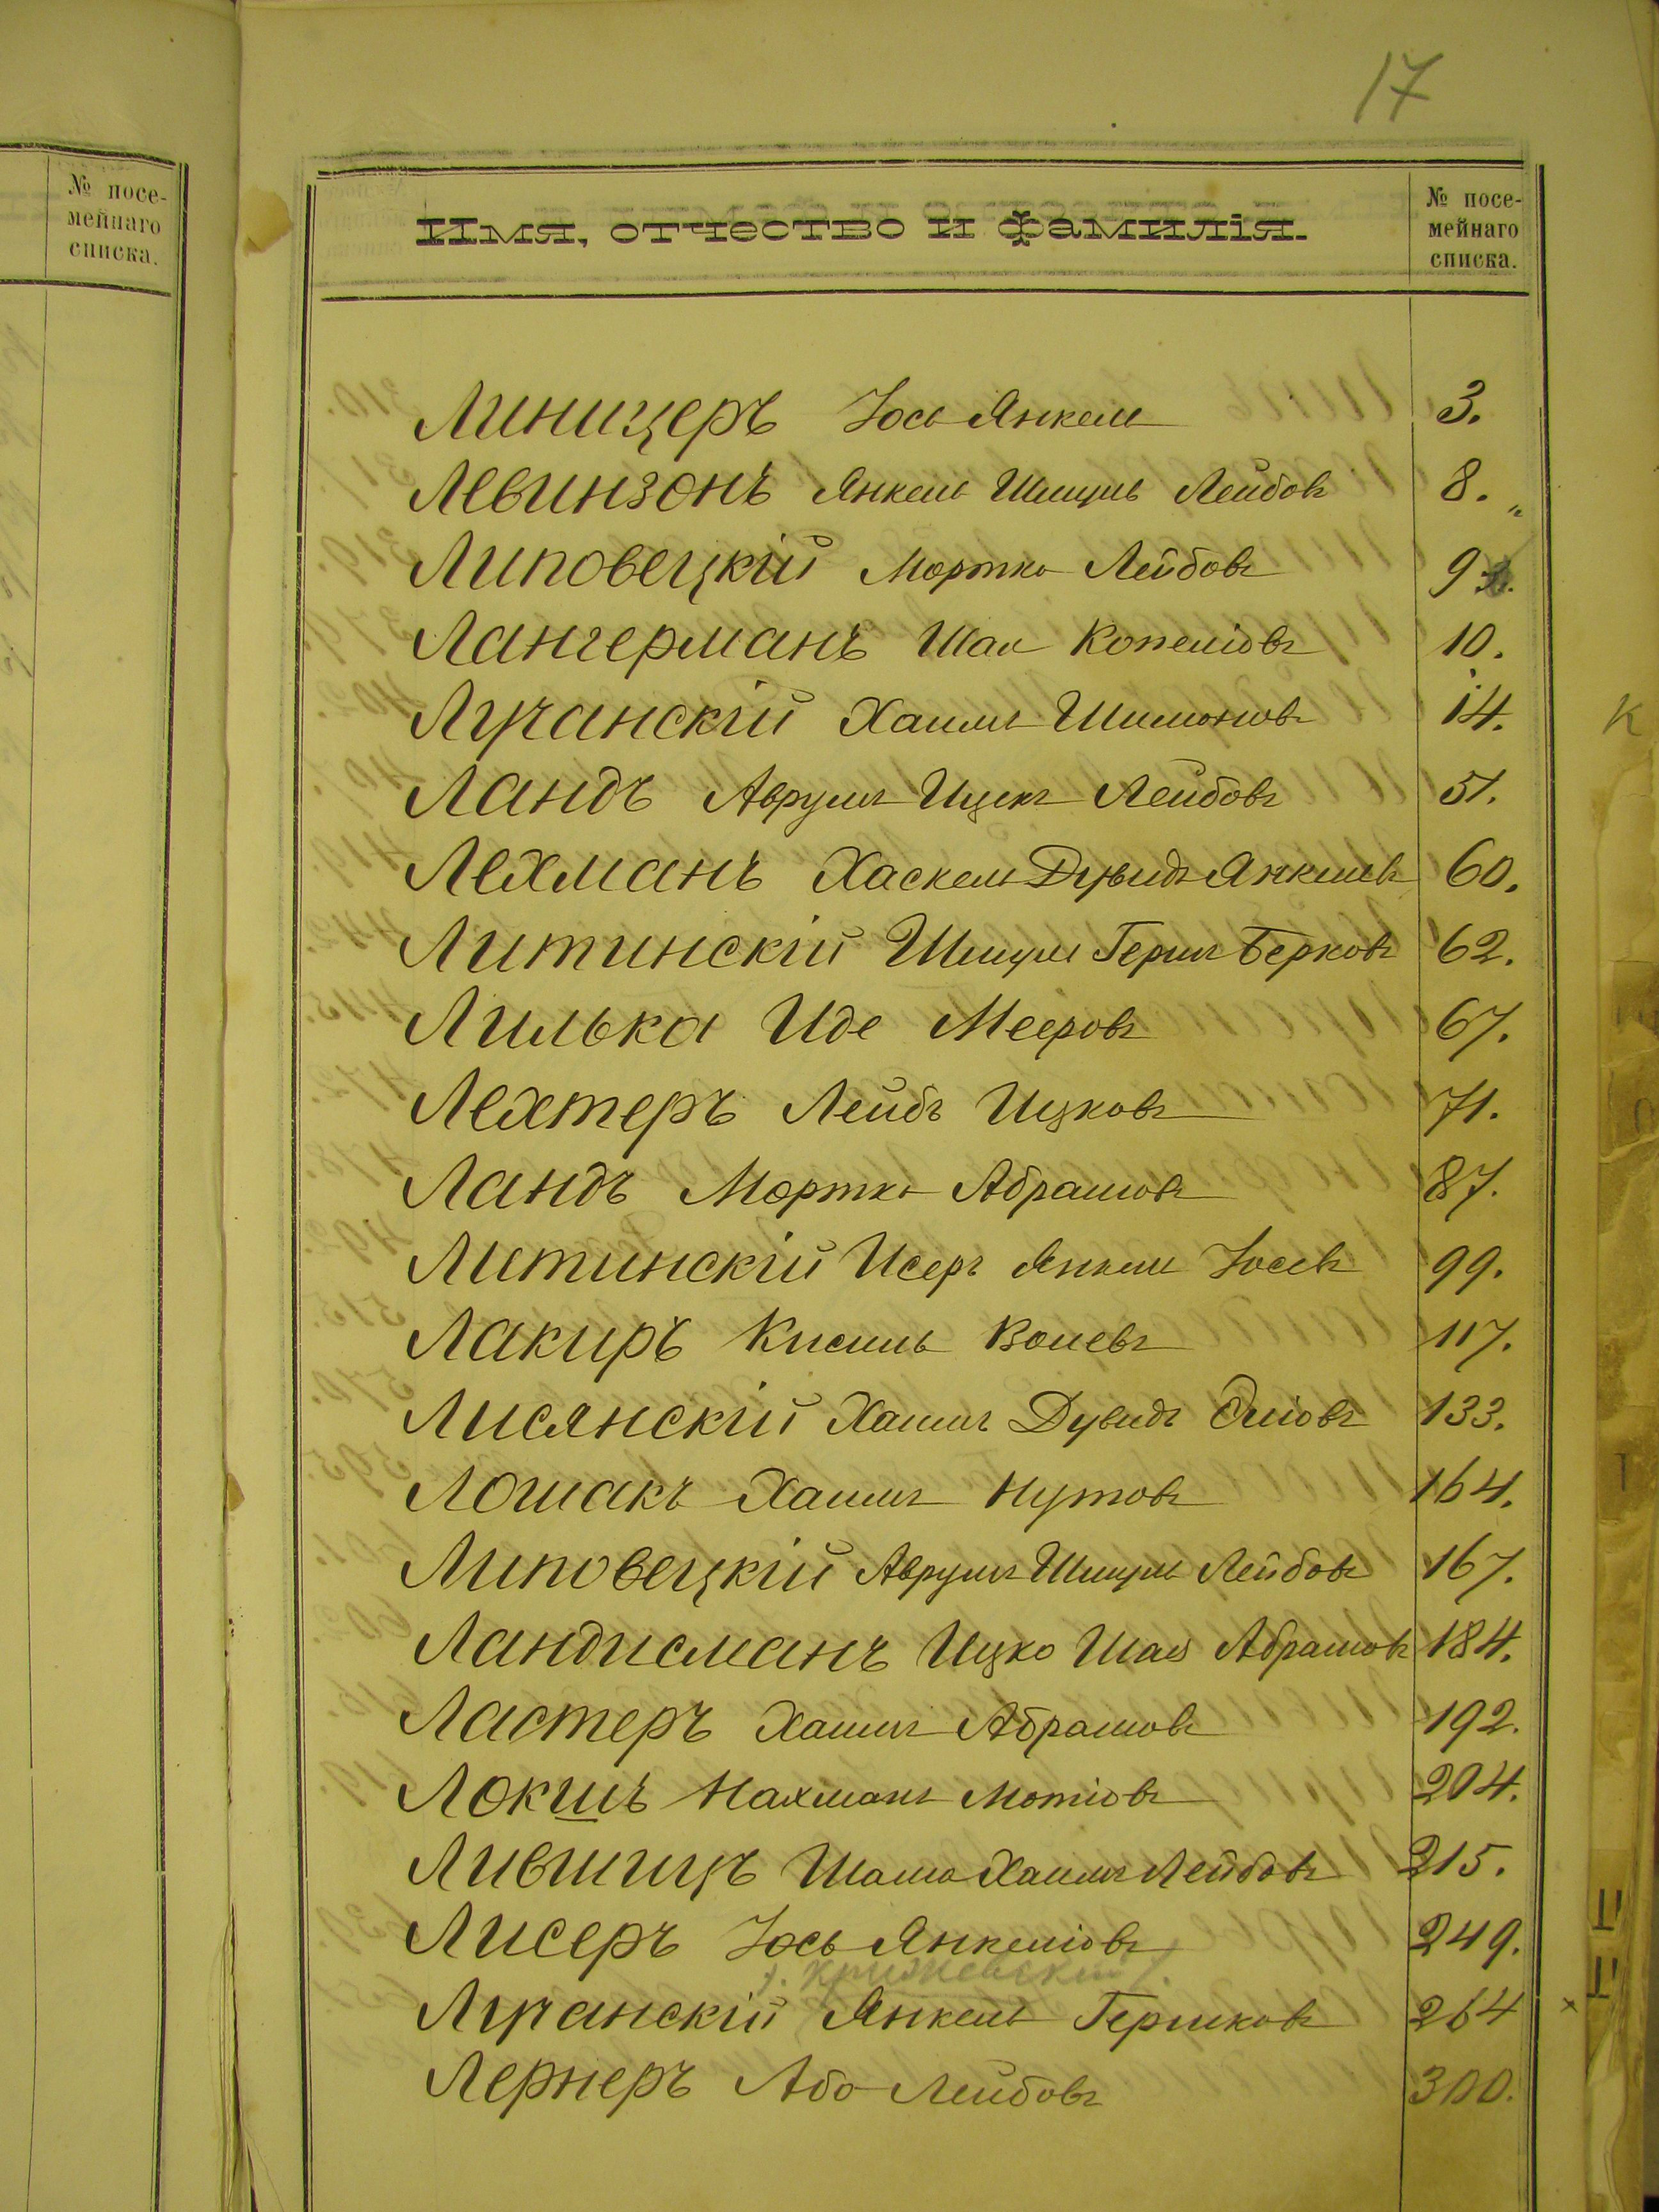 17
№ посе-
мейнаго
списка.
Имя, отчество и фамилія.
№ посе-
мейнаго
списка.
Линицеръ Іось Янкель 3.
Левинзонъ Янкель Шмуль Лейбовъ 8.
Липовецкій Мортко Лейбовъ 9
Лангерманъ Шая Копеліовъ 10.
Лучанскій Хаимъ Шимоновъ 14.
Ландъ Аврумъ Ицекъ Лейбовъ 51.
Лехманъ Хаскель Дувидъ Янкелевъ 60.
Литинскій Шмуль Гершъ Берковъ 62.
Лилька Иде Мееровъ 67.
Лехтеръ Лейбъ Ицковъ 71.
Ландъ Мортко Абрамовъ 87.
Литинскій Исеръ Янкель Іосевъ 99.
Лакиръ Кисиль Волевъ 117.
Лисянскій Хаимъ Дувидъ Эліовъ 133.
Лошакъ Хаимъ Нутовъ 164.
Липовецкій Аврумъ Шмуль Лейбовъ 167.
Ландисманъ Ицко Шая Абрамовъ 184.
Ластеръ Хаимъ Абрамовъ 192.
Локшъ Нахманъ Мотіовъ 204.
Лившицъ Шама Хаимъ Лейбовъ 215.
Лисеръ Іось Янкеліовъ 249.
Крижевскій
Лучанскій Янкель Гершковъ 264
Лернеръ Або Лейбовъ 300.